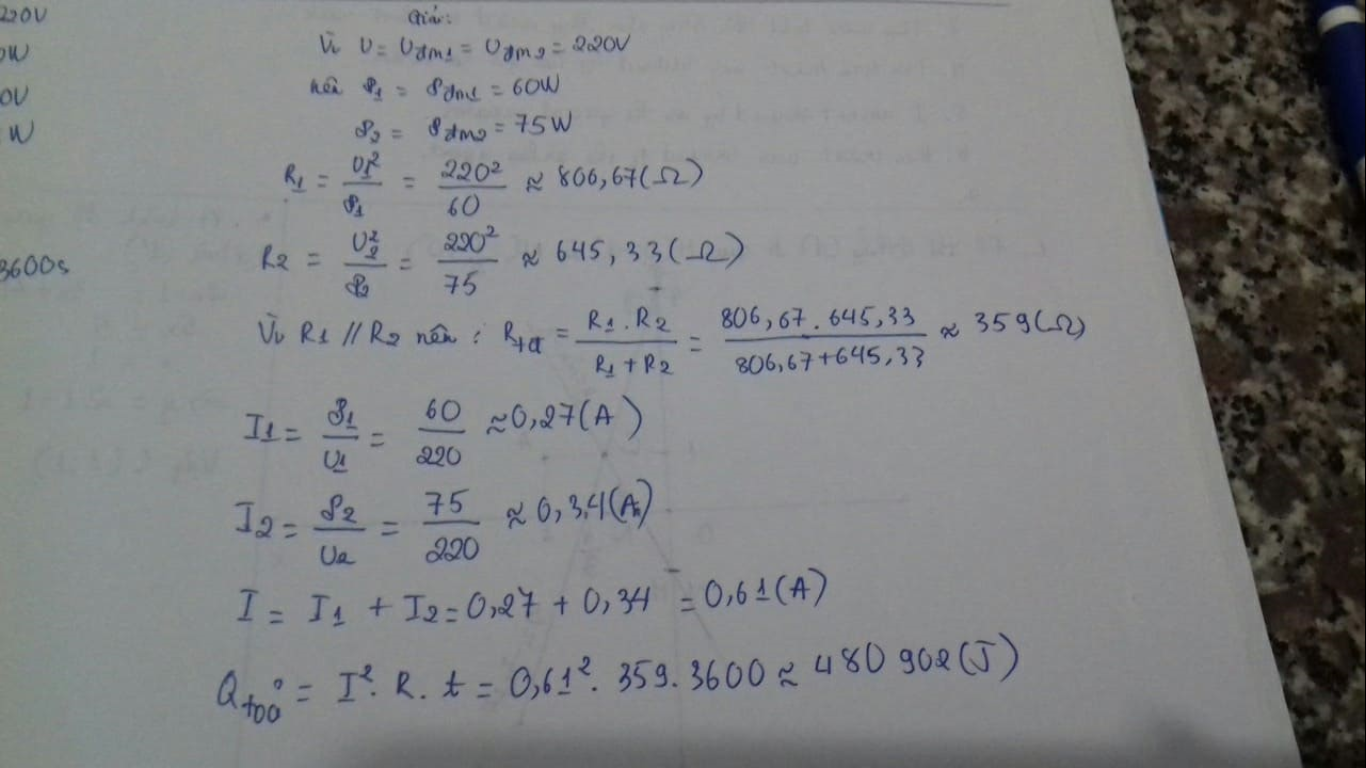 220V
0W
0V
W
3600s
Giải:
Vì U = Uđm1 = Uđm2 = 220V
nên P1 = Pđm1 = 60W
P2 = Pđm2 = 75W
R1 = U1²/P1 = 220²/60 ≈ 806,67(Ω)
R2 = U2²/P2 = 220²/75 ≈ 645,33(Ω)
Vì R1 // R2 nên : Rtđ = R1.R2/R1+R2 = 806,67.645,33/806,67+645,33 ≈ 359(Ω)
I1 = P1/U1 = 60/220 ≈ 0,27(A)
I2 = P2/U2 = 75/220 ≈ 0,34(A)
I = I1 + I2 = 0,27 + 0,34 = 0,61(A)
Qtoả = I². R. t = 0,61². 359. 3600 ≈ 480 902(J)